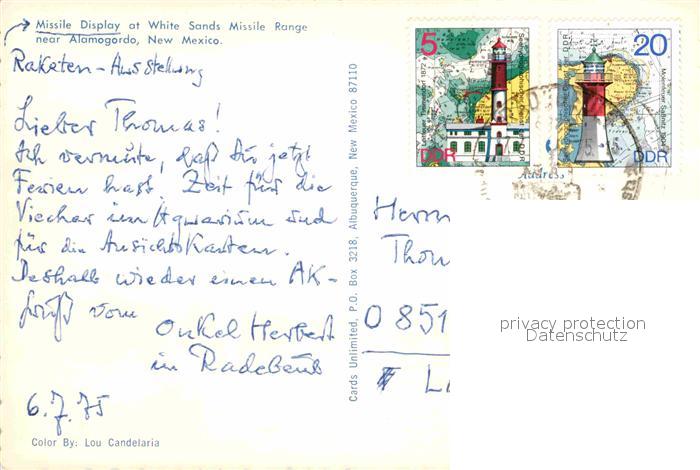 Missile Display at White Sands Missile Range
near Alamogordo, New Mexico.
Raketen-Ausstellung
Lieber Thomas!
Ich vermute, daß Du jetzt
Ferien hast. Zeit für die
Viecher im Aquarium und
für die Ansichtskarten.
Deshalb wieder einen AK-
Gruß vom
Onkel Herbert
in Radebeul
6.7.75
Color By: Lou Candelaria
Cards Unlimited, P.O. Box 3218, Albuquerque, New Mexico 87110
5
DDR
20
DDR
Address
Herrn
Thom
0851
privacy protection
Datenschutz